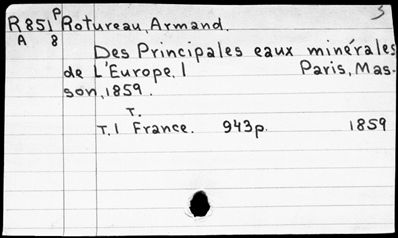 3
R851 P Rotureau, Armand.
A 8
Des Principales eaux minérales
de L'Europe, 1 Paris, Mas-
son, 1859.
T.
T. 1 France. 943p. 1859